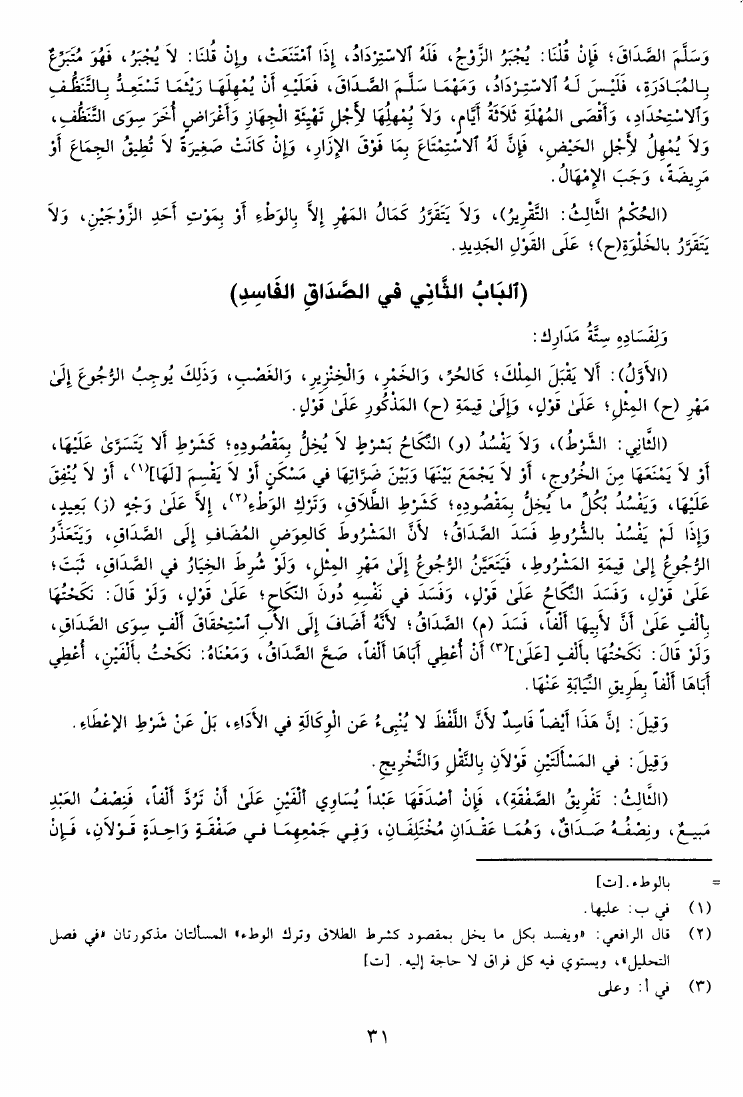 وَسَلَّمَ الصَّدَاقَ؛ فَإِنْ قُلْنَا: يُجْبَرُ الزَّوْجُ، فَلَهُ ٱلاسْتِرْدَادُ، إِذَا ٱمْتَنَعَتْ، وإِنْ قُلْنَا: لاَ يُجْبَرُ، فَهُوَ مُتَبَرِّعٌ
بِالمُبَادَرَةِ، فَلَيْسَ لَهُ ٱلاسْتِرْدَادُ، وَمَهْمَا سَلَّمَ الصَّدَاقَ، فَعَلَيْهِ أَنْ يُمْهِلَهَا رَيْثَمَا تَسْتَعِدُّ بِالتَّنَظُّفِ
وَٱلاسْتِحْدَادِ، وَأَقْصَى المُهْلَةِ ثَلاَثَةُ أَيَّامٍ، وَلاَ يُمْهِلُهَا لأَجْلِ تَهْيِئَةِ الْجِهَازِ وَأَغْرَاضٍ أُخَرَ سِوَى التَّنَظُّفِ،
وَلاَ يُمْهِلُ لأَجْلِ الحَيْضِ، فَإِنَّ لَهُ ٱلاسْتِمْتَاعَ بِمَا فَوْقَ الإِزَارِ، وَإِنْ كَانَتْ صَغِيرَةً لاَ تُطِيقُ الجِمَاعَ أَوْ
مَرِيضَةً، وَجَبَ الإِمْهَالُ.
(الحُكْمُ الثَّالِثُ: التَّقْرِيرُ)، وَلاَ يَتَقَرَّرُ كَمَالُ المَهْرِ إِلاَّ بِالوَطْءِ أَوْ بِمَوْتِ أَحَدِ الزَّوْجَيْنِ، وَلاَ
يَتَقَرَّرُ بالخَلْوَةِ(ح)؛ عَلَى القَوْلِ الجَدِيدِ.
(ٱلبَابُ الثَّانِي في الصَّدَاقِ الفَاسِدِ)
وَلِفَسَادِهِ سِتَّةُ مَدَارِكَ:
(الأَوَّلُ): أَلا يَقْبَلَ المِلْكَ؛ كَالحُرِّ، وَالخَمْرِ، وَالْخِنْزِيرِ، وَالغَصْبِ، وَذَلِكَ يُوجِبُ الرُّجُوعَ إِلَىٰ
مَهْرِ (ح) المِثْلِ؛ عَلَىٰ قَوْلٍ، وَإِلَىٰ قِيمَةِ (ح) المَذْكُورِ عَلَىٰ قَوْلٍ.
(الثَّانِي: الشَّرْطُ)، وَلاَ يَفْسُدُ (و) النِّكَاحُ بَشَرْطٍ لاَ يُخِلُّ بِمَقْصُودِهِ؛ كَشَرْطِ أَلا يَتَسَرَّىٰ عَلَيْهَا،
أَوْ لاَ يَمْنَعَهَا مِنَ الخُرُوجِ، أَوْ لاَ يَجْمَعَ بَيْنَهَا وَبَيْنَ ضَرَّاتِهَا في مَسْكَنٍ أَوْ لاَ يَقْسِمَ [لَهَا](١)، أَوْ لاَ يُنْفِقَ
عَلَيْهَا، وَيَفْسُدُ بِكُلِّ ما يُخِلُّ بِمَقْصُودِهِ؛ كَشَرْطِ الطَّلاَقِ، وَتَرْكِ الوَطْءِ(٢)، إِلاَّ عَلَىٰ وَجْهٍ (ز) بَعِيدٍ،
وَإِذَا لَمْ يَفْسُدْ بالشُّرُوطِ فَسَدَ الصَّدَاقُ؛ لأَنَّ المَشْرُوطَ كَالعِوَضِ المُضَافِ إِلَى الصَّدَاقِ، وَيَتَعَذَّرُ
الرُّجُوعُ إِلىٰ قِيمَةِ المَشْرُوطِ، فَيَتَعَيَّنُ الرُّجُوعُ إِلَىٰ مَهْرِ المِثْلِ، وَلَوْ شُرِطَ الخِيَارُ في الصَّدَاقِ، ثَبَتَ؛
عَلَىٰ قَوْلٍ، وَفَسَدَ النِّكَاحُ عَلَىٰ قَوْلٍ، وَفَسَدَ في نَفْسِهِ دُونَ النِّكَاحِ؛ عَلَىٰ قَوْلٍ، وَلَوْ قَالَ: نَكَحْتُهَا
بِأَلْفٍ عَلَىٰ أَنَّ لأَبِيهَا أَلْفاً، فَسَدَ (م) الصَّدَاقُ؛ لأَنَّهُ أَضَافَ إِلَى الأَبِ ٱسْتِحْقَاقَ أَلْفٍ سِوَى الصَّدَاقِ،
وَلَوْ قَالَ: نَكَحْتُهَا بِأَلْفٍ [عَلَىٰ](٣) أَنْ أُعْطِي أَبَاهَا أَلْفاً، صَحَّ الصَّدَاقُ، وَمَعْنَاهُ: نَكَحْتُ بأَلْفَيْنِ، أُعْطِي
أَبَاهَا أَلْفاً بِطَرِيقِ النِّيَابَةِ عَنْهَا.
وَقِيلَ: إِنَّ هَذَا أَيْضاً فَاسِدٌ لأَنَّ اللَّفْظَ لا يُنْبِىءُ عَنِ الْوَكَالَةِ في الأَدَاءِ، بَلْ عَنْ شَرْطِ الإِعْطَاءِ.
وَقِيلَ: في المَسْأَلَتَيْنِ قَوْلاَنِ بِالنَّقْلِ وَالتَّخْرِيجِ.
(الثَّالِثُ: تَفْرِيقُ الصَّفْقَةِ)، فَإِنْ أَصْدَقَهَا عَبْداً يُسَاوِي أَلْفَيْنِ عَلَىٰ أَنْ تَرُدَّ أَلْفاً، فَنِصْفُ العَبْدِ
مَبِيعٌ، ونِصْفُهُ صَدَاقٌ، وَهُمَا عَقْدَانِ مُخْتَلِفَانِ، وَفِي جَمْعِهِمَا في صَفْقَةٍ وَاحِدَةٍ قَوْلاَنِ، فَإِنْ
= بالوطء. [ت]
(١) في ب: عليها.
(٢) قال الرافعي: «ويفسد بكل ما يخل بمقصود كشرط الطلاق وترك الوطء» المسألتان مذكورتان «في فصل
التحليل»، ويستوي فيه كل فراق لا حاجة إليه. [ت]
(٣) في أ: وعلى
٣١